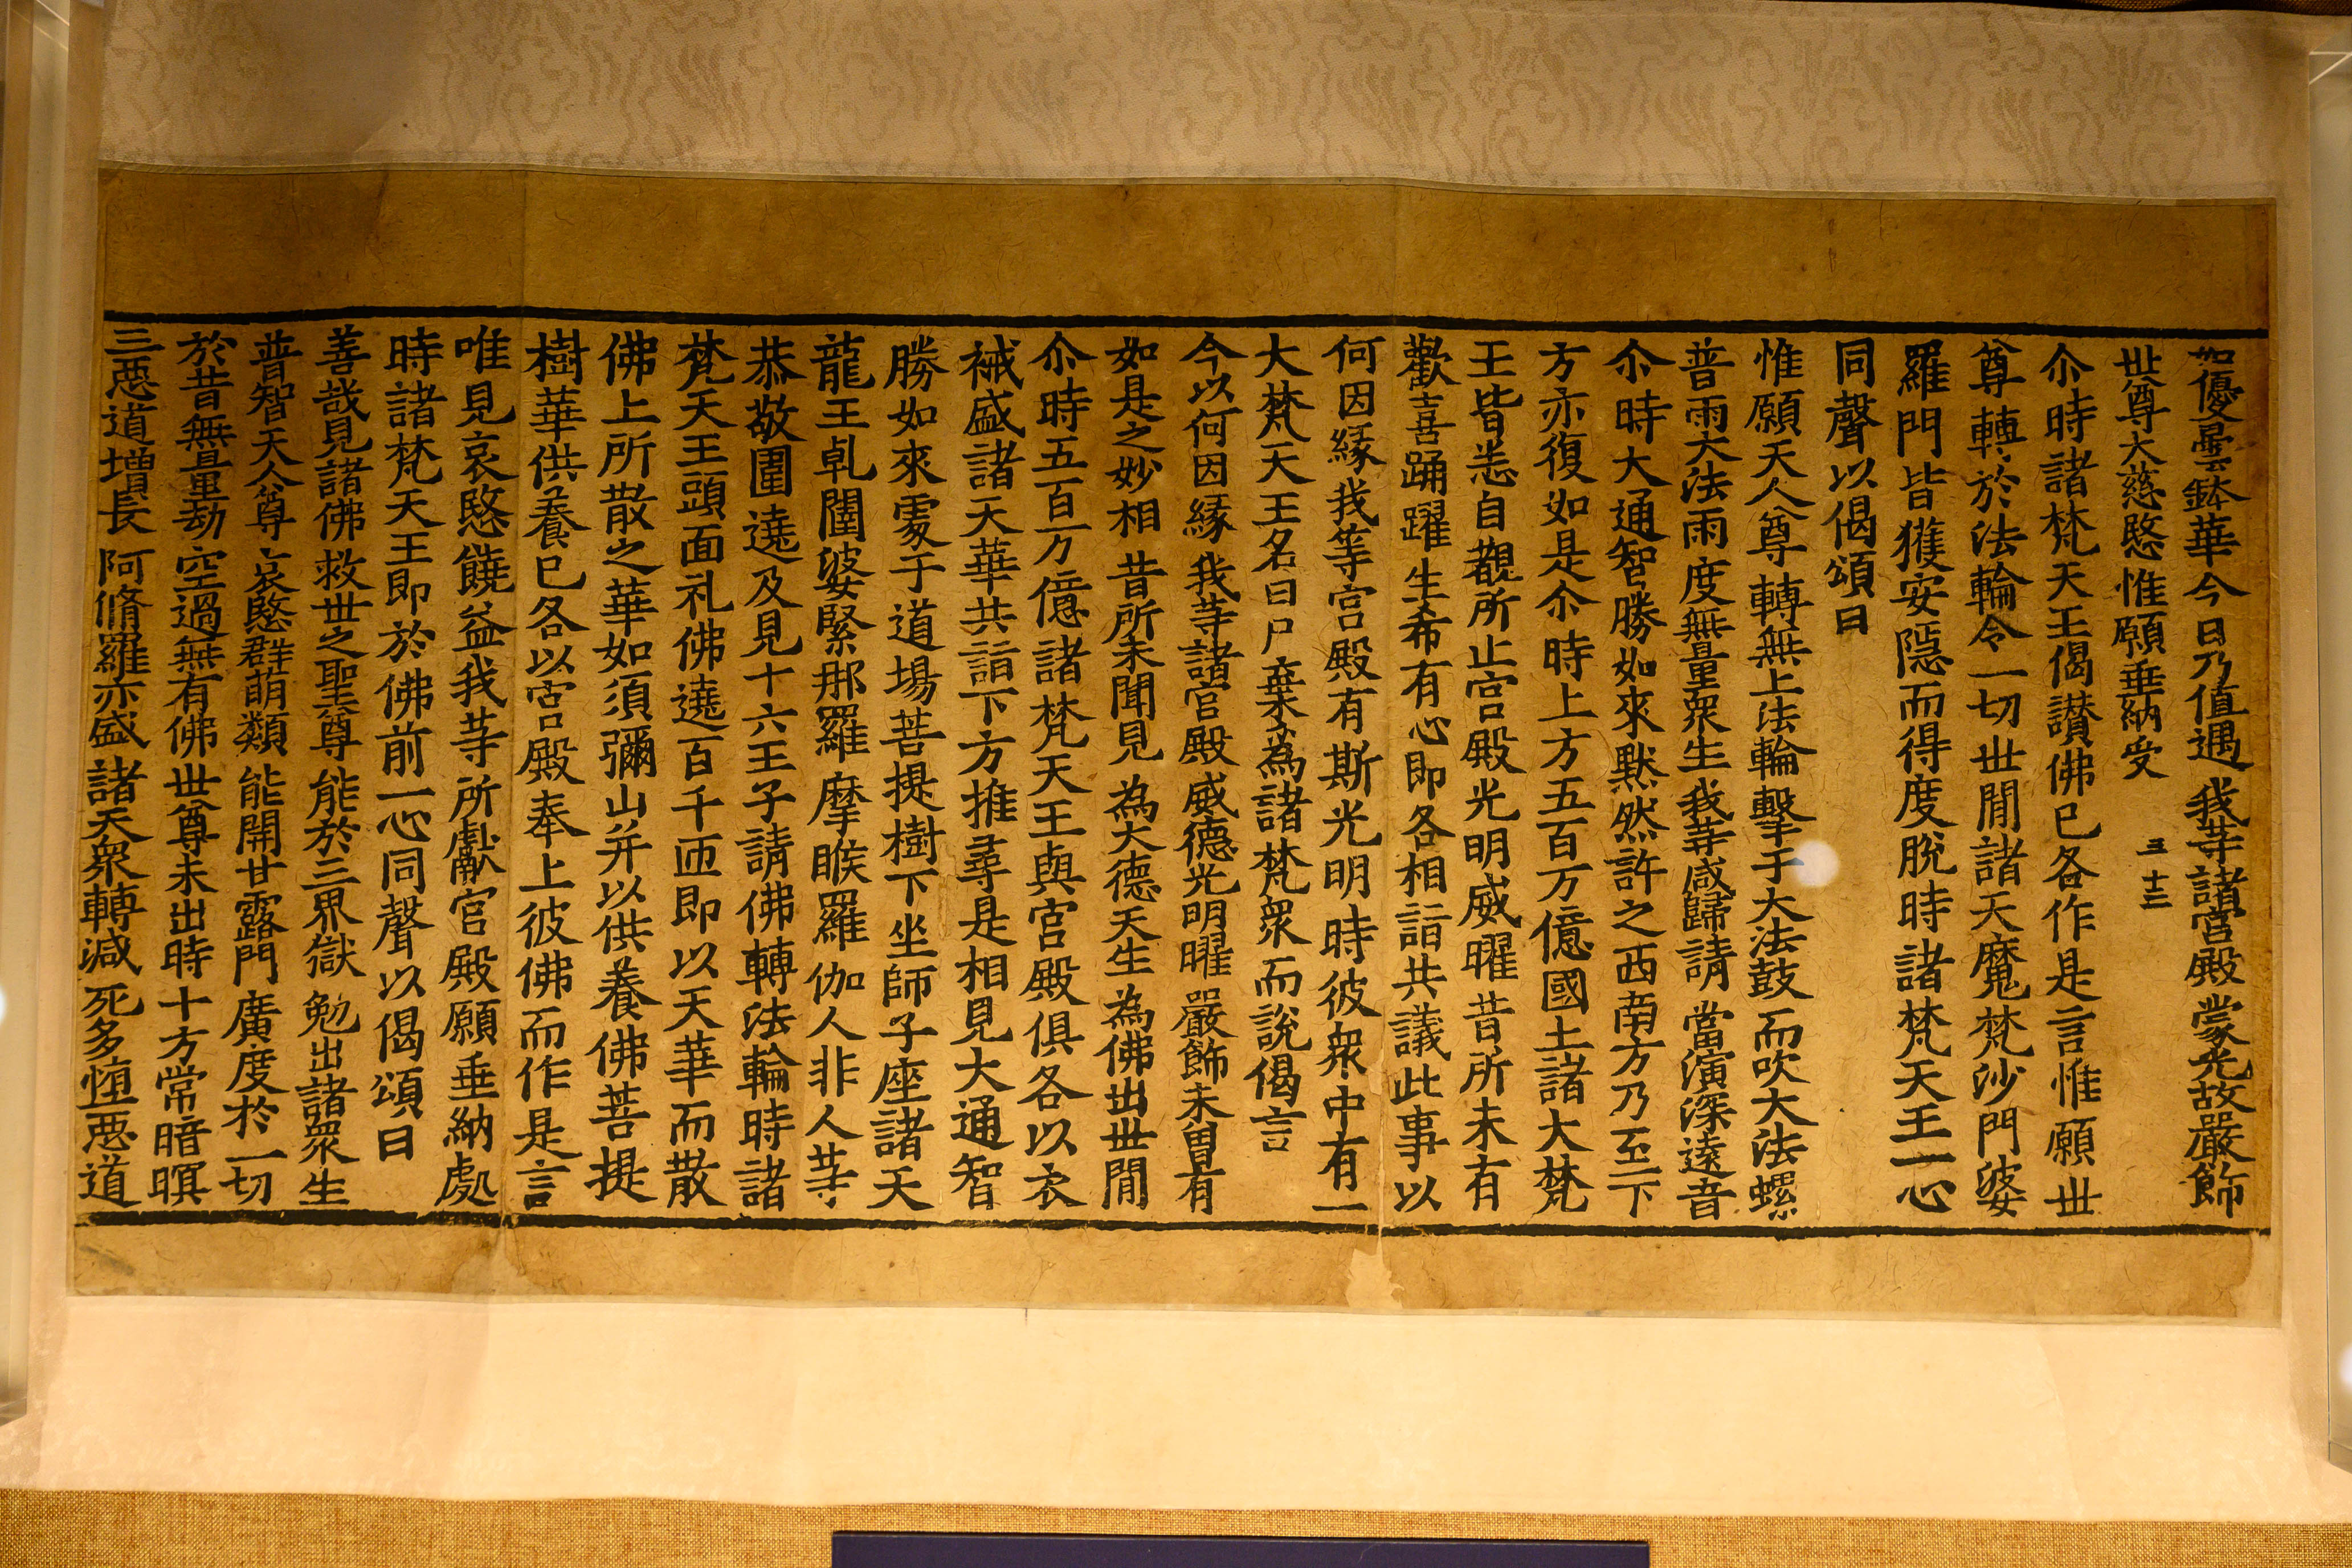 如優曇鉢華 今日乃值遇 我等諸宮殿 蒙光故嚴飾
世尊大慈愍 惟願垂納受
三 十三
尒時諸梵天王偈讃佛已各作是言惟願世
尊轉於法輪令一切世間諸天魔梵沙門婆
羅門皆獲安隱而得度脫時諸梵天王一心
同聲以偈頌曰
惟願天人尊 轉無上法輪 擊于大法鼓 而吹大法螺
普雨大法雨 度無量衆生 我等咸歸請 當演深遠音
尒時大通智勝如來默然許之西南方乃至下
方亦復如是尒時上方五百万億國土諸大梵
王皆悉自覩所止宮殿光明威曜昔所未有
歡喜踊躍生希有心即各相詣共議此事以
何因緣我等宮殿有斯光明時彼衆中有一
大梵天王名曰尸棄為諸梵衆而說偈言
今以何因緣 我等諸宮殿 威德光明曜 嚴飾未曽有
如是之妙相 昔所未聞見 為大德天生 為佛出世間
尒時五百万億諸梵天王與宮殿俱各以衣
裓盛諸天華共詣下方推尋是相見大通智
勝如來處于道場菩提樹下坐師子座諸天
龍王乹闥婆緊那羅摩睺羅伽人非人等
恭敬圍遶及見十六王子請佛轉法輪時諸
梵天王頭面礼佛遶百千匝即以天華而散
佛上所散之華如須彌山并以供養佛菩提
樹華供養已各以宮殿奉上彼佛而作是言
唯見哀愍饒益我等所獻宮殿願垂納處
時諸梵天王即於佛前一心同聲以偈頌曰
善哉見諸佛 救世之聖尊 能於三界獄 勉出諸衆生
普智天人尊 哀愍群萌類 能開甘露門 廣度於一切
於昔無量劫 空過無有佛 世尊未出時 十方常暗暝
三惡道增長 阿脩羅亦盛 諸天衆轉減 死多堕惡道